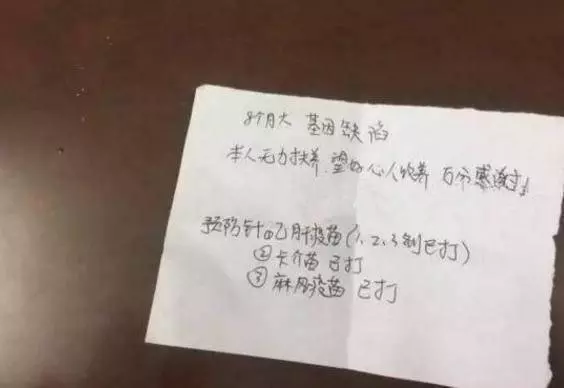 8个月大 基因缺陷
本人无力扶养.望好心人收养 万分感谢!
预防针①乙肝疫苗(1、2、3剂已打)
②卡介苗 已打
③麻风疫苗 已打